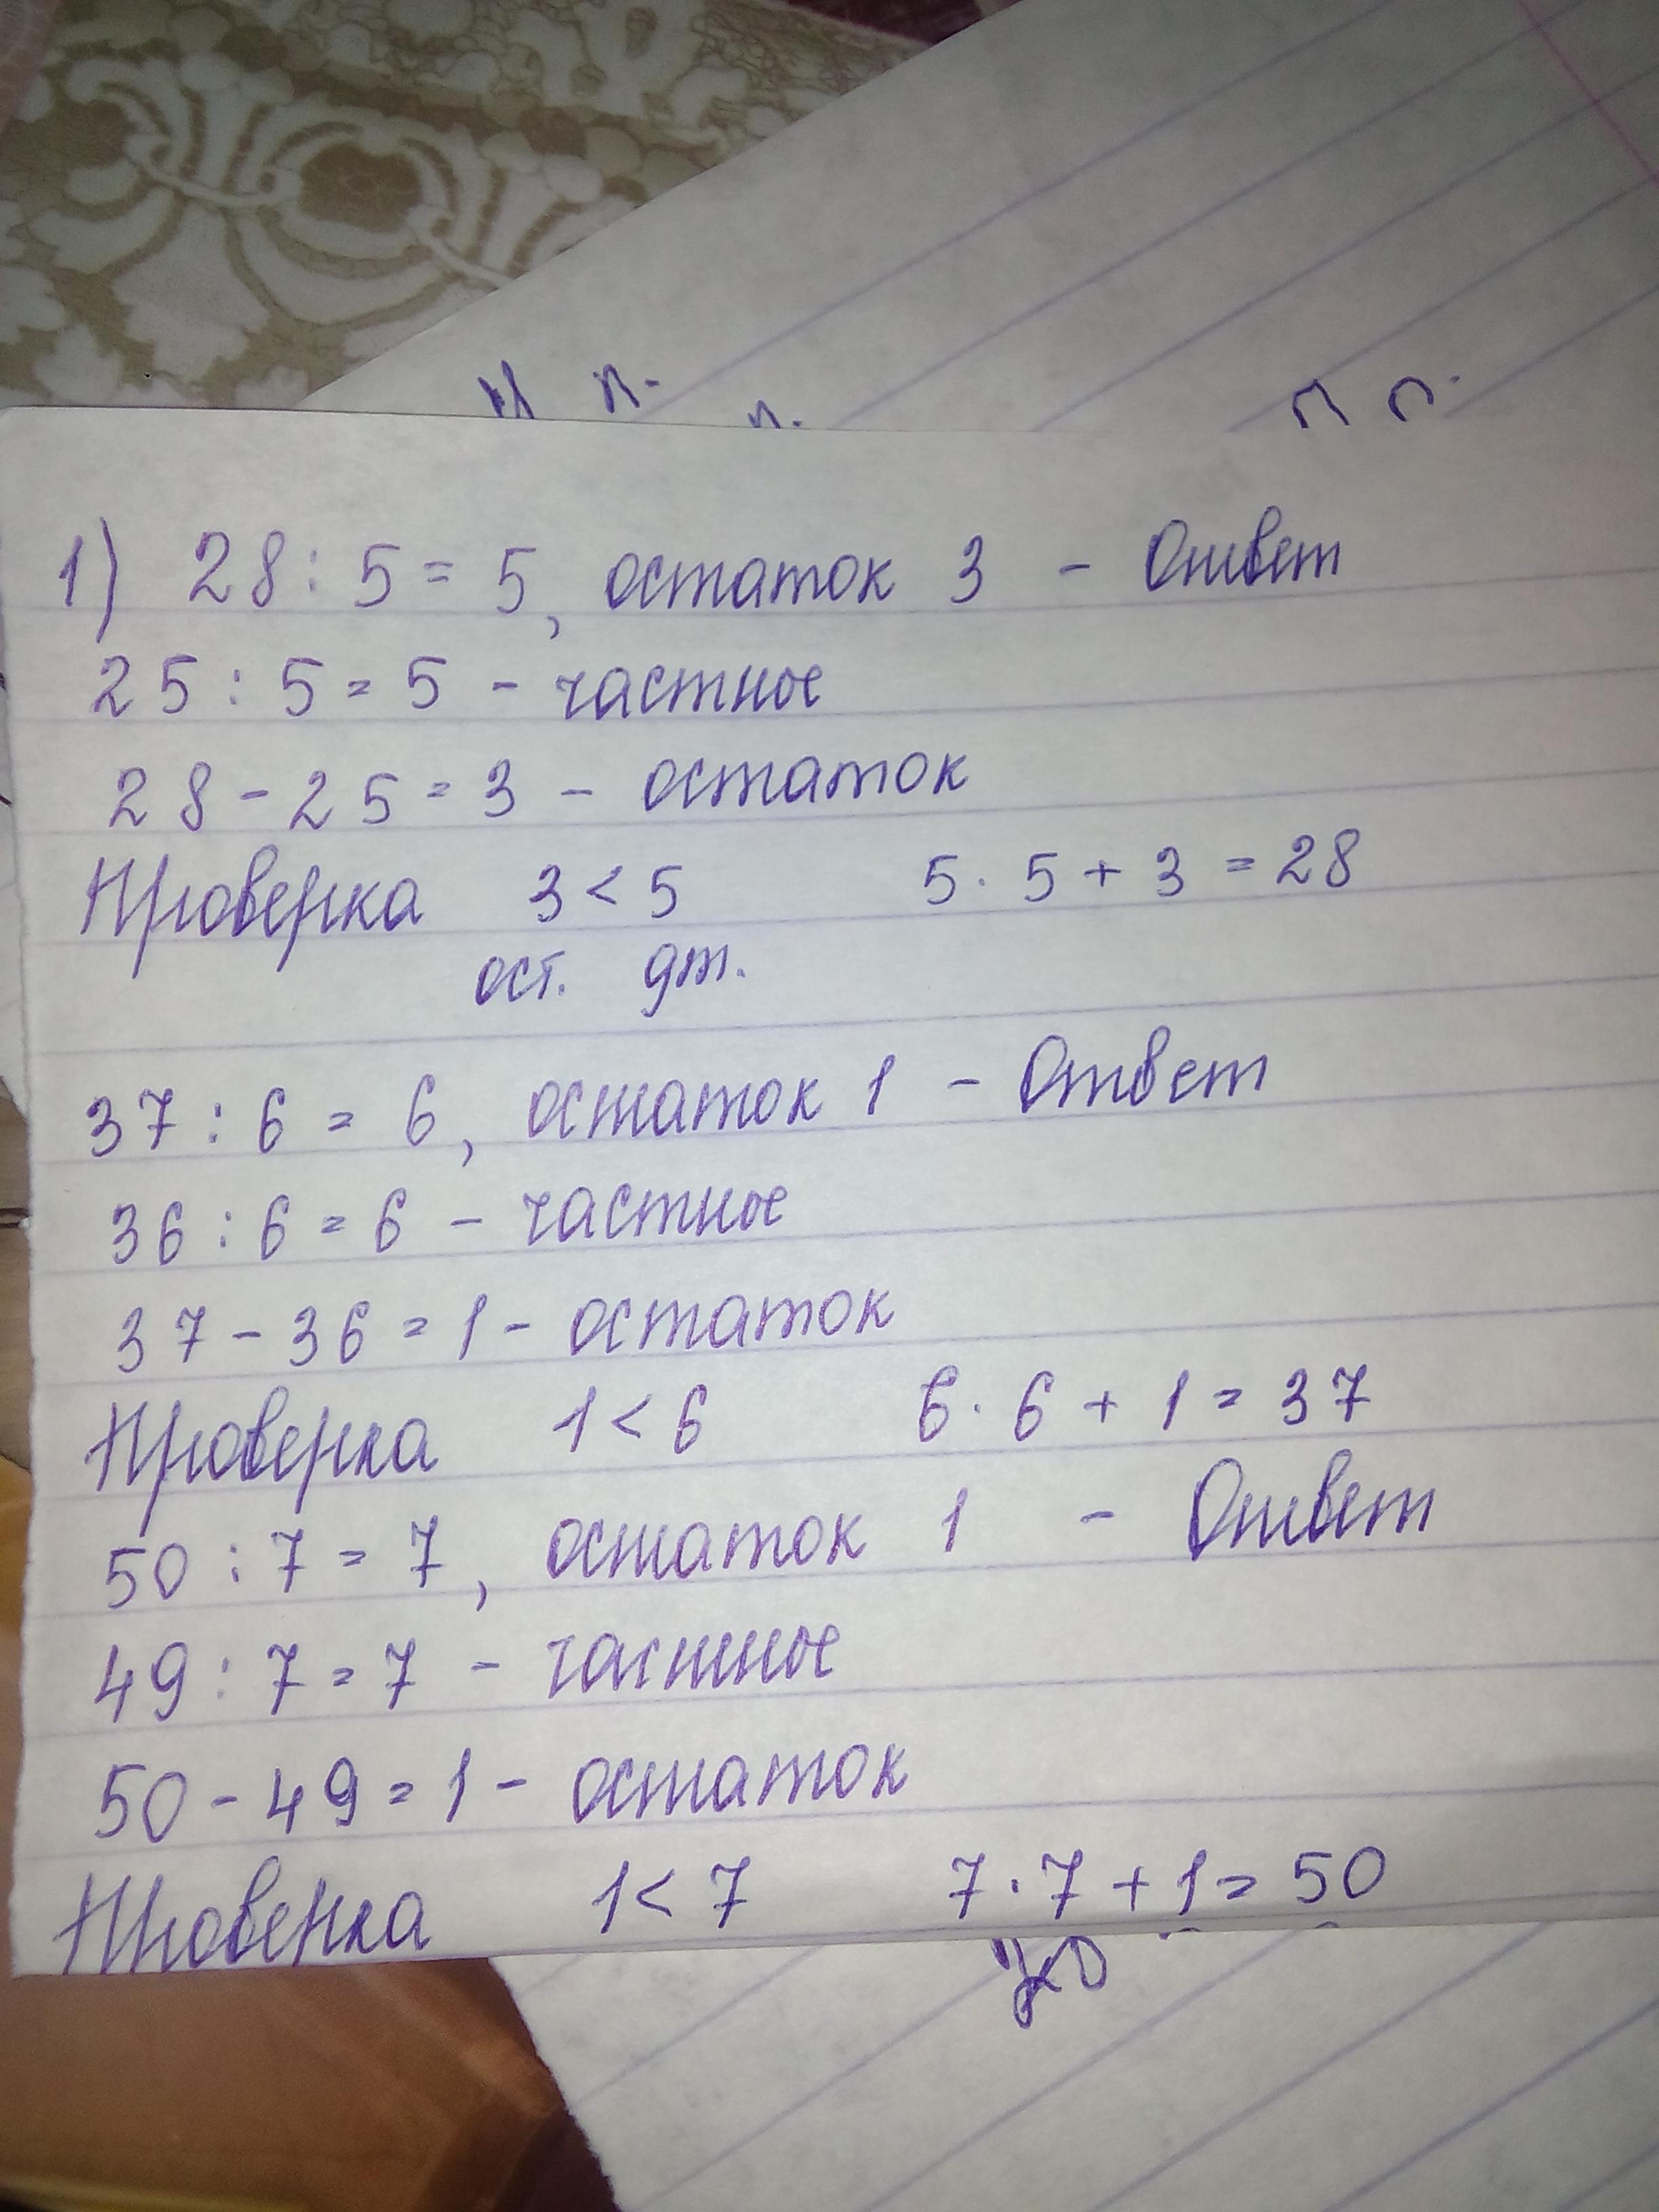 1) 28 : 5 = 5, остаток 3 - Ответ
25 : 5 = 5 - частное
28 - 25 = 3 - остаток
Проверка 3 < 5 5 · 5 + 3 = 28
ост. дт.
37 : 6 = 6, остаток 1 - Ответ
36 : 6 = 6 - частное
37 - 36 = 1 - остаток
Проверка 1 < 6 6 · 6 + 1 = 37
50 : 7 = 7, остаток 1 - Ответ
49 : 7 = 7 - частное
50 - 49 = 1 - остаток
Проверка 1 < 7 7 · 7 + 1 = 50